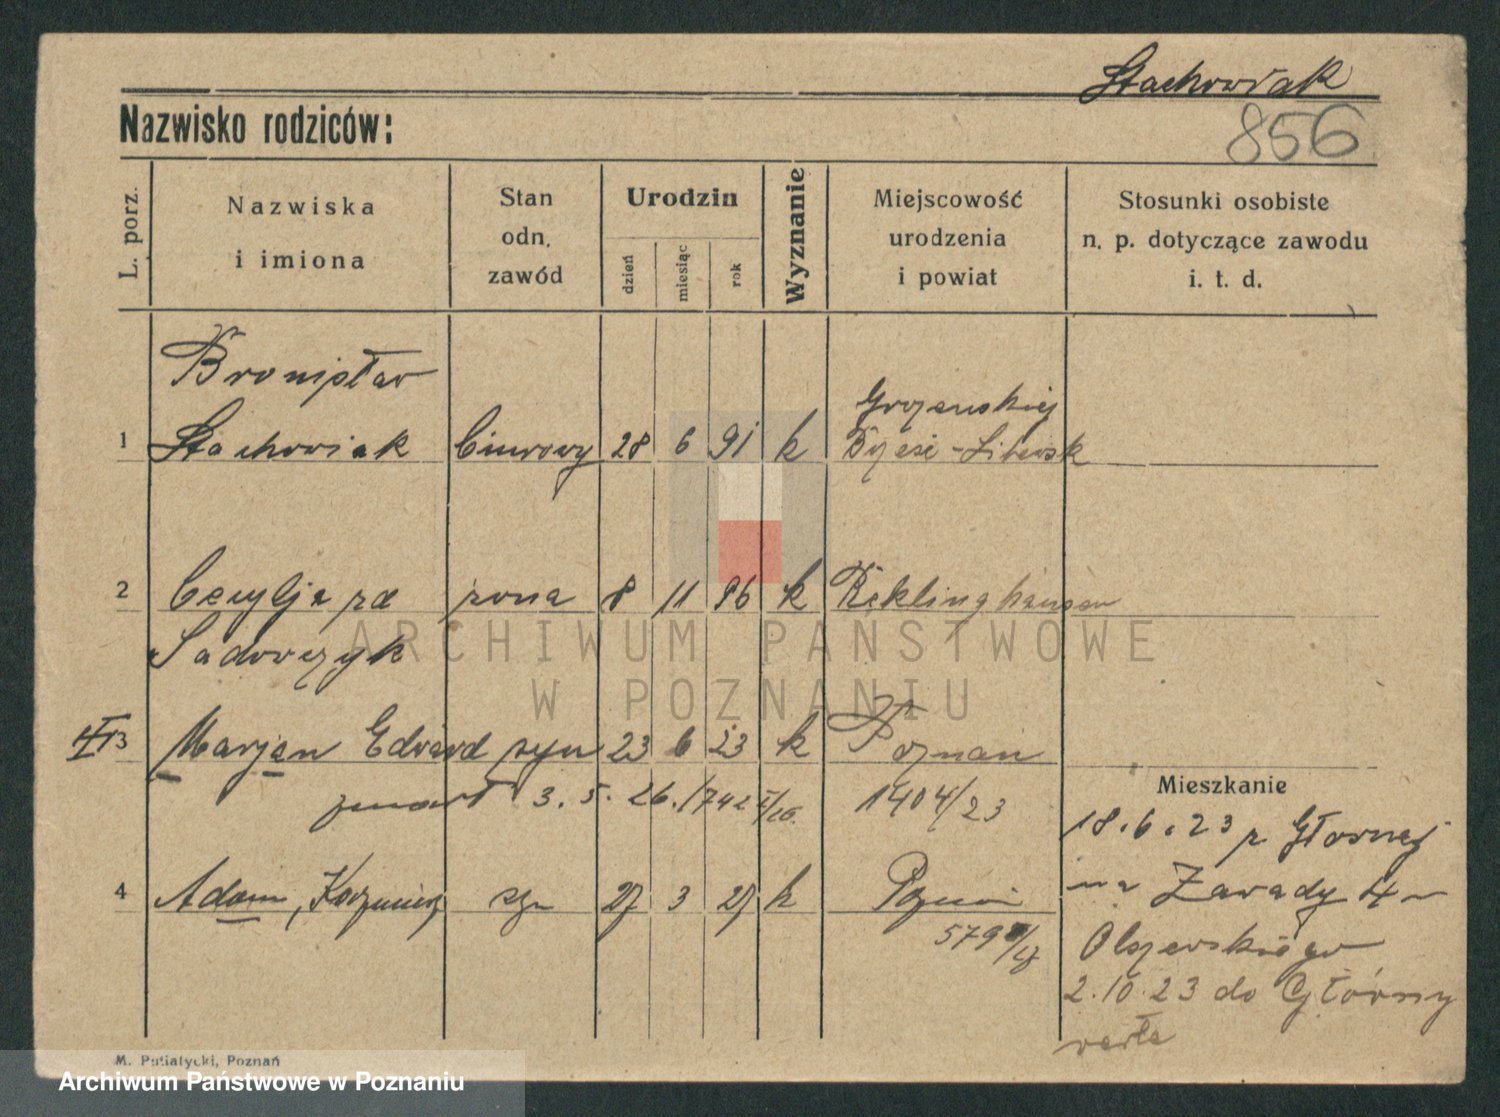 Stachowiak
Nazwisko rodziców:
856
L. porz.
Nazwiska
i imiona
Stan
odn.
zawód
Urodzin
dzień
miesiąc
rok
Wyznanie
Miejscowość
urodzenia
i powiat
Stosunki osobiste
n. p. dotyczące zawodu
i. t. d.
Bronisław
1 Stachowiak biurowy 28 6 91 k
2 Cecylja zd żona 8 11 96 k Reklinghausen
Sadowczyk
3 Marjan Edward syn 23 6 23 k Poznań
zmarł 3. 5. 26. 1742
1404/23
4 Adam, Kazimierz syn 27 3 27 k Poznań
579
Mieszkanie
18.6.23 z Głównej
na Zawady 4
Olszewskiego
2.10.23 do Główny
M. Putiatycki, Poznań
ARCHIWUM PAŃSTWOWE
W POZNANIU
Archiwum Państwowe w Poznaniu